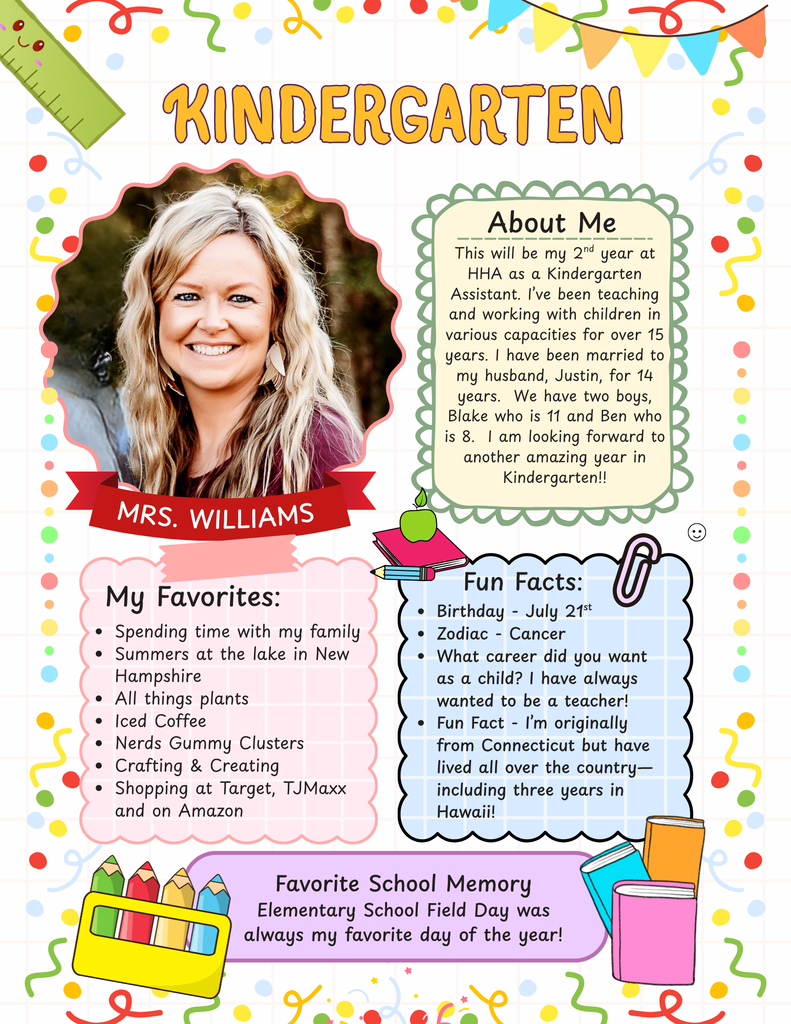 KINDERGARTEN
About Me
This will be my 2nd year at
HHA as a Kindergarten
Assistant. I've been teaching
and working with children in
various capacities for over 15
years. I have been married to
my husband, Justin, for 14
years.  We have two boys,
Blake who is 11 and Ben who
is 8.  I am looking forward to
another amazing year in
Kindergarten!!
MRS. WILLIAMS
My Favorites:
• Spending time with my family
• Summers at the lake in New
Hampshire
• All things plants
• Iced Coffee
• Nerds Gummy Clusters
• Crafting & Creating
• Shopping at Target, TJMaxx
and on Amazon
Fun Facts:
• Birthday - July 21st
• Zodiac - Cancer
• What career did you want
as a child? I have always
wanted to be a teacher!
• Fun Fact - I'm originally
from Connecticut but have
lived all over the country—
including three years in
Hawaii!
Favorite School Memory
Elementary School Field Day was
always my favorite day of the year!